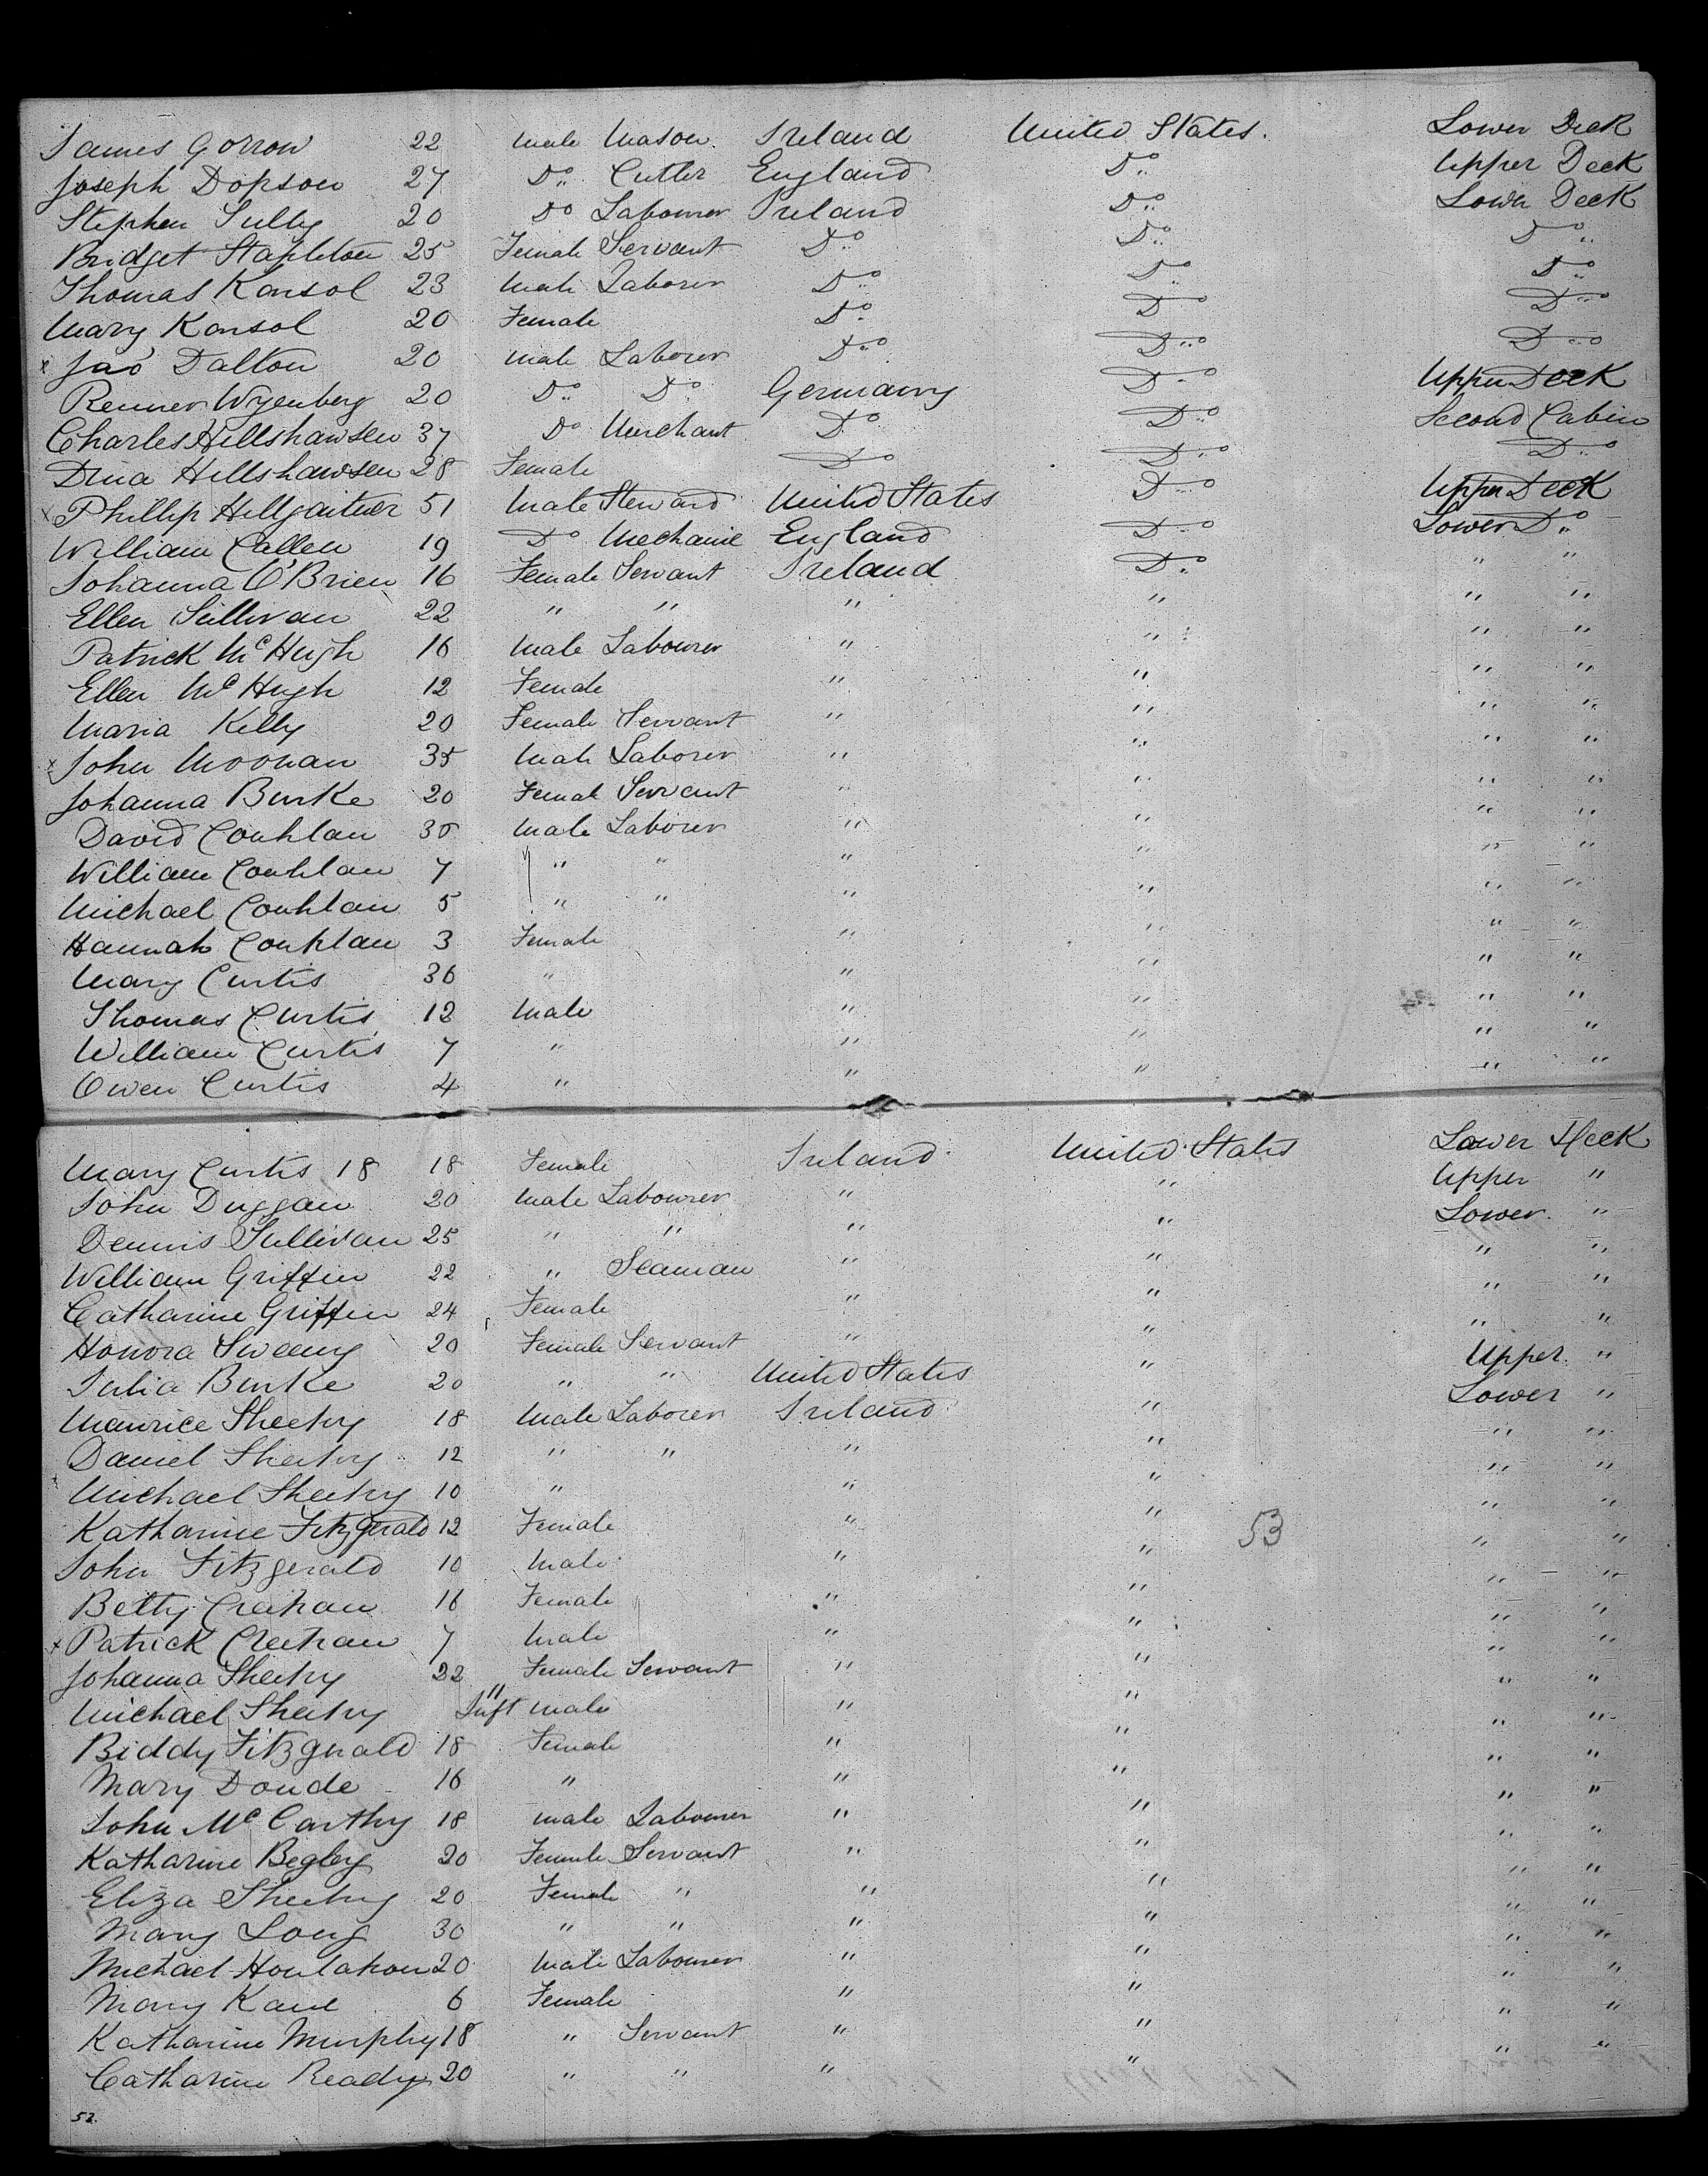 James Gorrow 22 Male Mason Ireland United States. Lower Deck
Joseph Dopson 27 Do Cutler England Do Upper Deck
Stephen Tully 20 Do Labourer Ireland Do Lower Deck
Bridget Stapleton 25 Female Servant Do Do Do
Thomas Konsol 23 Male Laborer Do Do Do
Mary Konsol 20 Female Do Do Do
x Jas Dalton 20 Male Laborer Do Do Do
Renner Wyenberg 20 Do Do Germany Do Upper Deck
Charles Hillshawsen 37 Do Merchant Do Do Second Cabin
Hillshawsen 28 Female Do Do Do
x Phillip Hillgaitner 51 Male Steward United States Do Upper Deck
William Callen 19 Do Mechanic England Do Lower Do
Johanna O'Brien 16 Female Servant Ireland Do " "
Ellen Sullivan 22 " " " " " "
Patrick McHugh 16 Male Labourer " " " "
Ellen McHugh 12 Female " " " "
Maria Kelly 20 Female Servant " " " "
x John Moonan 35 Male Laborer " " " "
Johanna Burke 20 Female Servant " " " "
David Conhlan 30 Male Laborer " " " "
William Conhlan 7 " " " " " "
Michael Conhlan 5 " " " " " "
Hannah Conhlan 3 Female " " " "
Mary Curtis 36 " " " " "
Thomas Curtis 12 Male " " " "
William Curtis 7 " " " " "
Owen Curtis 4 " " " " "
Mary Curtis 18 18 Female Ireland United States Lower Deck
John Duggan 20 Male Labourer " " Upper "
Dennis Sullivan 25 " " " " Lower "
William Griffin 22 " Seaman " " " "
Catharine Griffin 24 Female " " " "
Honora Sweeny 20 Female Servant " " " "
Julia Burke 20 " " United States " Upper "
Maurice Sheehy 18 Male Laborer Ireland " Lower "
Daniel Sheehy 12 " " " " " "
Michael Sheehy 10 " " " " "
Katharine Fitzgerald 12 Female " " " "
53
John Fitzgerald 10 Male " " " "
Betty Creehan 16 Female " " " "
x Patrick Creehan 7 Male " " " "
Johanna Sheehy 22 Female Servant " " " "
Michael Sheehy Inft Male " " " "
Biddy Fitzgerald 18 Female " " " "
Mary Doude 16 " " " " "
John McCarthy 18 Male Labourer " " " "
Katharine Begley 20 Female Servant " " " "
Eliza Sheehy 20 Female " " " " "
Mary Long 30 " " " " " "
Michael Houlahan 20 Male Labourer " " " "
Mary Kane 6 Female " " " "
Katharine Murphy 18 " Servant " " " "
Catharine Ready 20 " " " " " "
53.